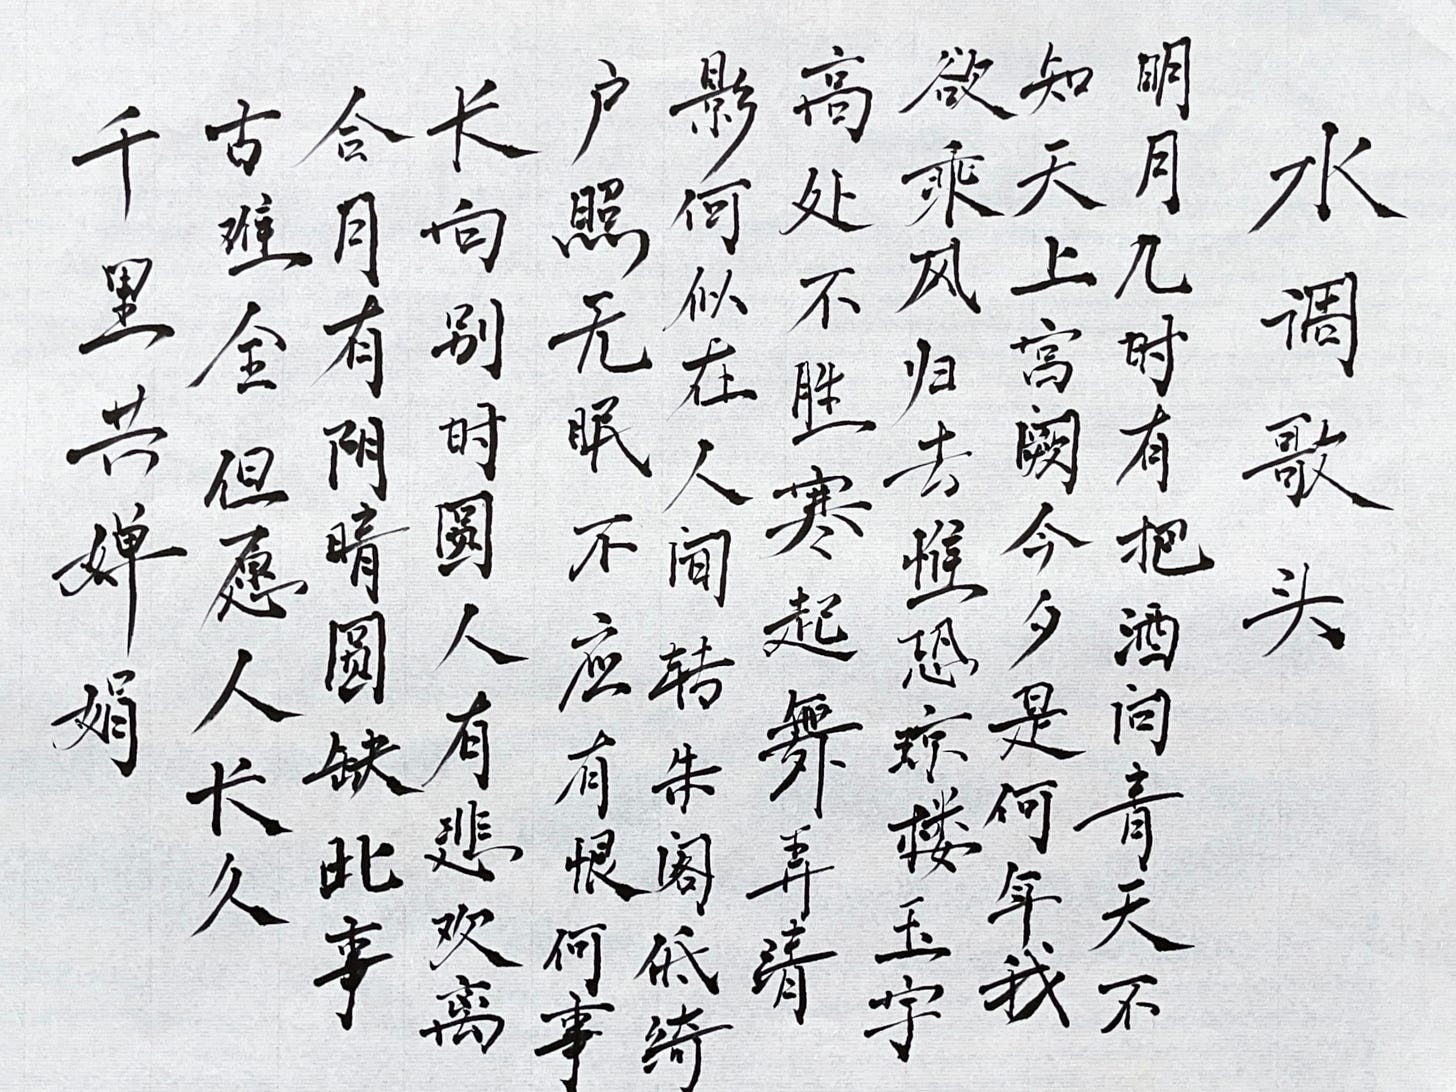 水调歌头
明月几时有把酒问青天不
知天上宫阙今夕是何年我
欲乘风归去惟恐琼楼玉宇
高处不胜寒起舞弄清
影何似在人间转朱阁低绮
户照无眠不应有恨何事
长向别时圆人有悲欢离
合月有阴晴圆缺此事
古难全但愿人长久
千里共婵娟